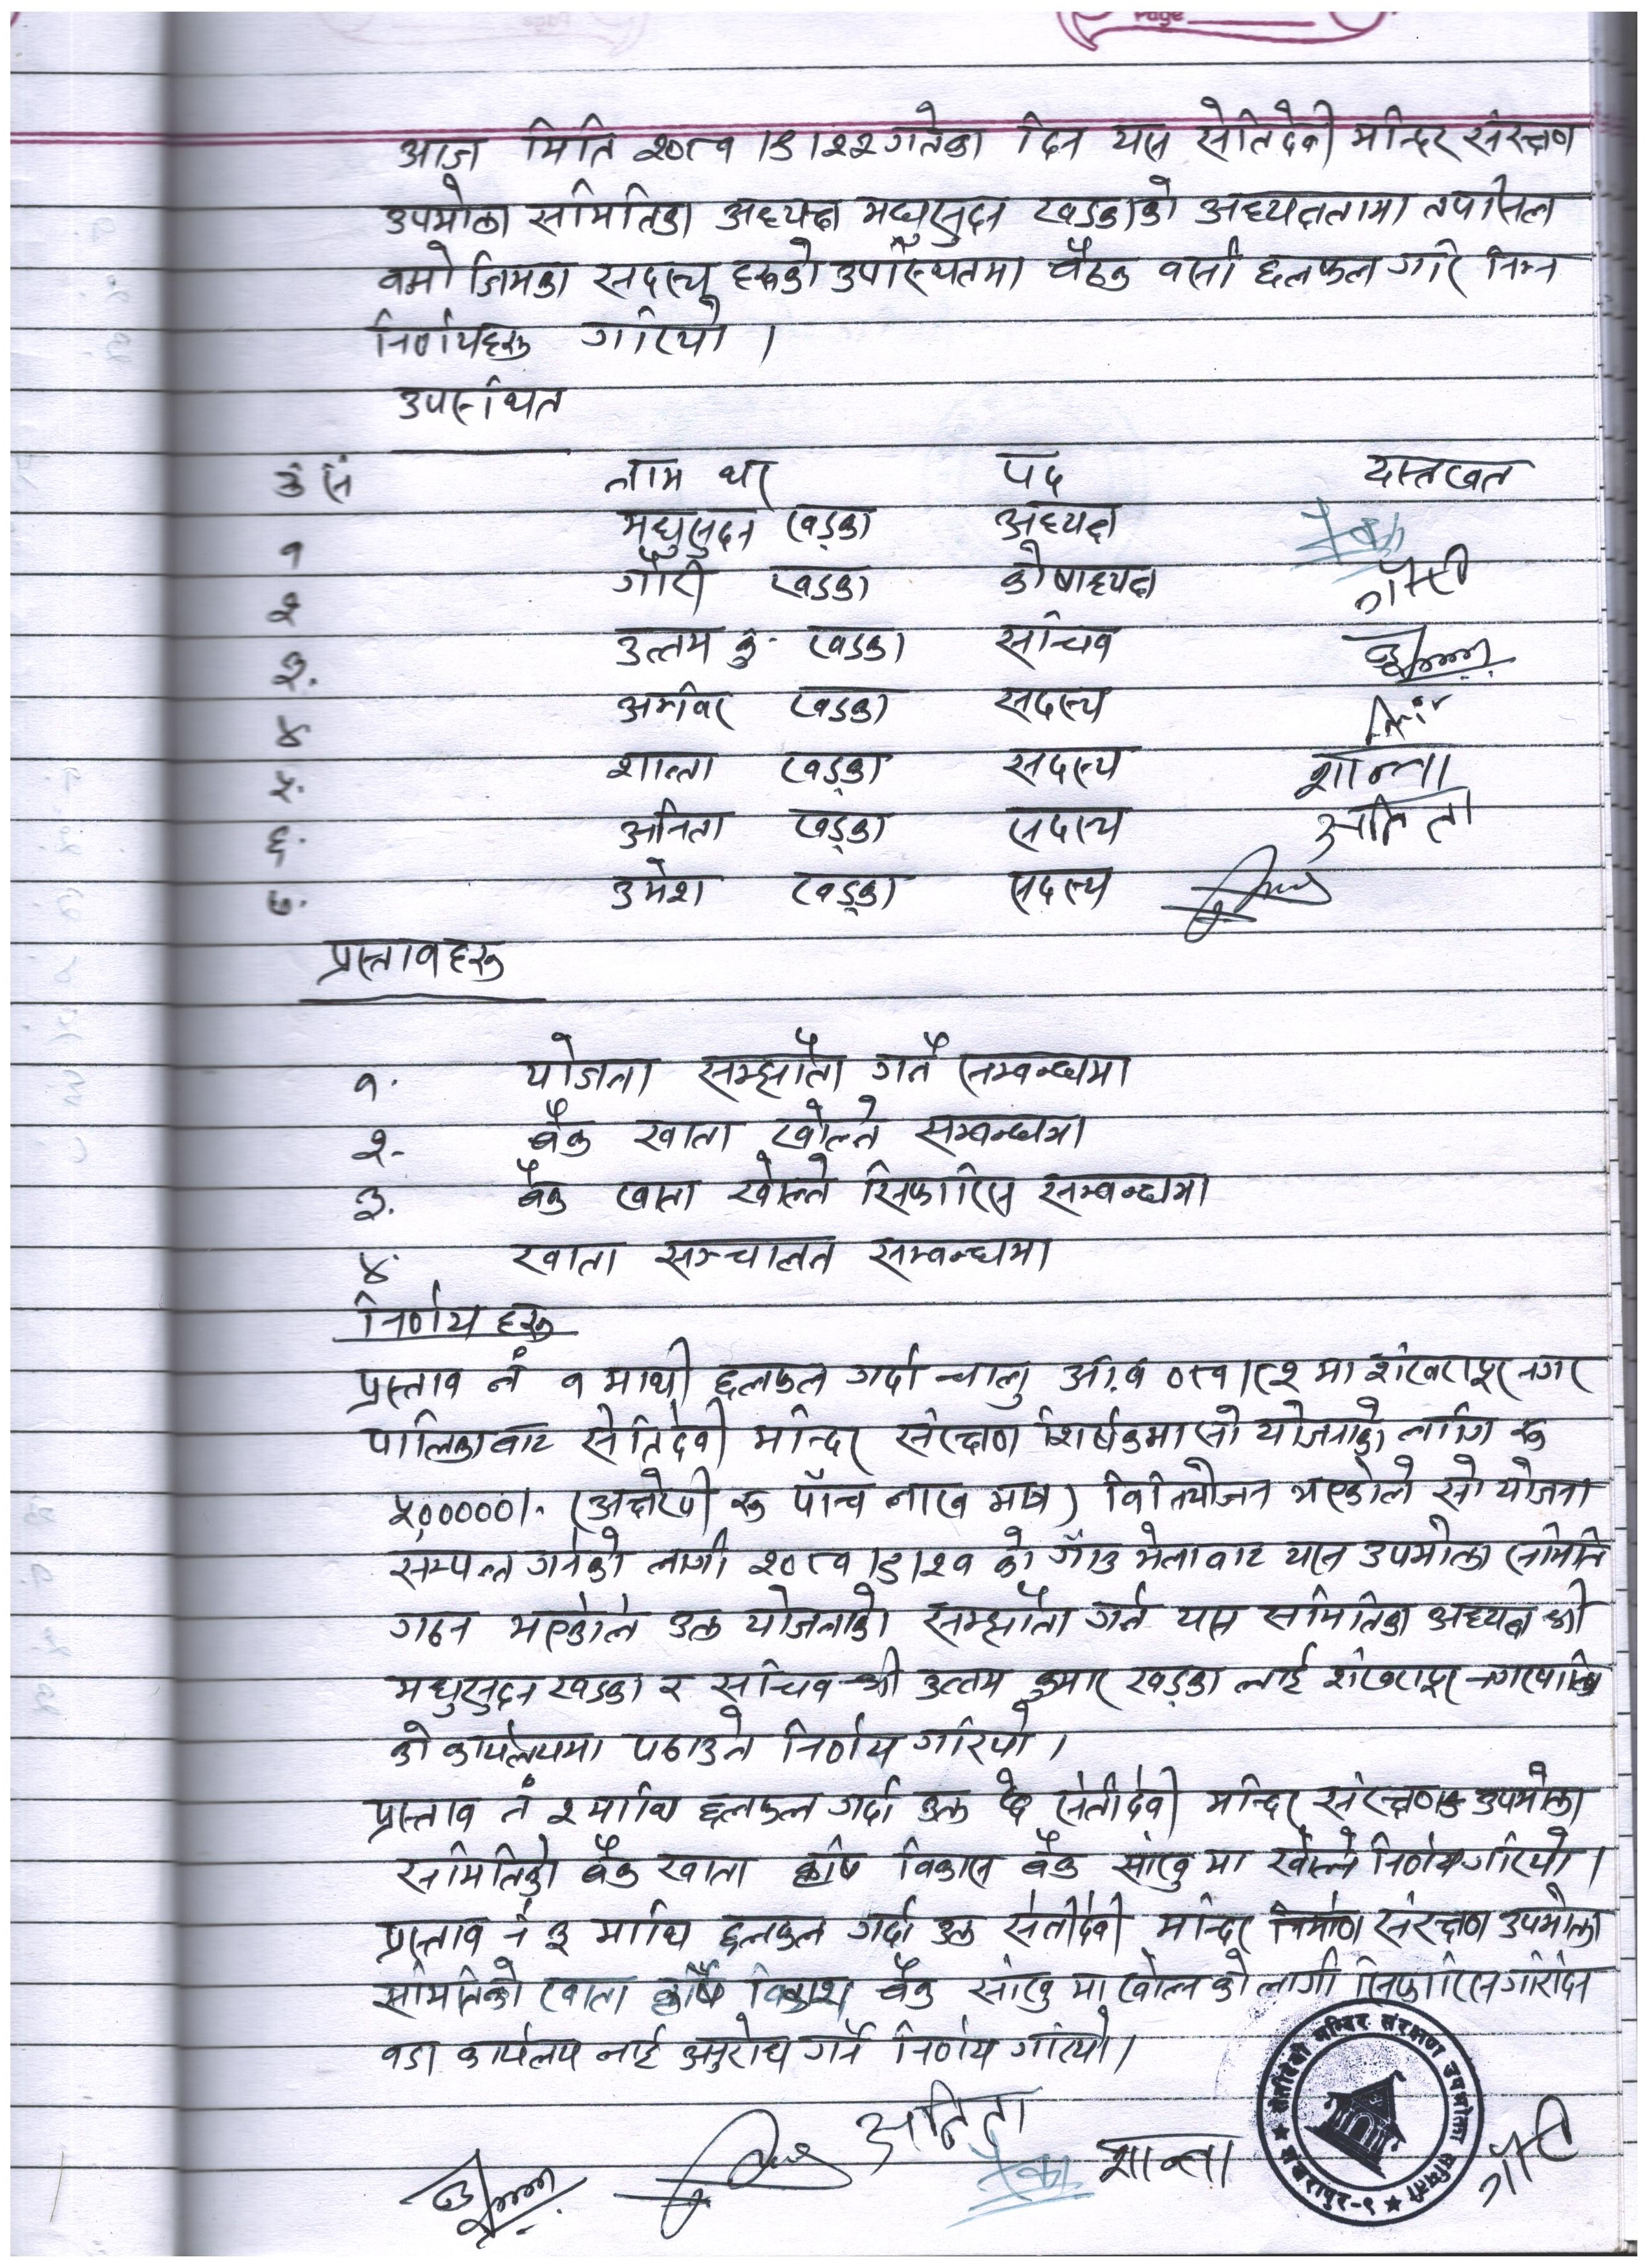 Page
आज मिति २०८१।८।२२ गतेका दिन यस सेतिदेवी मन्दिर संरक्षण
उपभोक्ता समितिका अध्यक्ष मधुसुदन खडकाको अध्यक्षतामा तपसिल
वमोजिमका सदस्य हरुको उपस्थितमा बैठक वसी छलफल गरि निम्न
निर्णयहरु गरियो ।
उपस्थित
क्र सं नाम थर पद दस्तखत
१ मधुसुदन खड्का अध्यक्ष
२ गौरी खडका कोषाध्यक्ष गौरी
३. उत्तम कु. खडका सचिव
४ अमविर खडका सदस्य
५. शान्ता खड्का सदस्य शान्ता
६. अनिता खड्का सदस्य अनिता
७. उमेश खड्का सदस्य
प्रस्तावहरु
१. योजना सम्झौता गर्ने सम्वन्धमा
२- बैंक खाता खोल्ने सम्वन्धमा
३. बैंक खाता खोल्ने सिफारिस सम्वन्धमा
४. खाता सञ्चालन सम्वन्धमा
निर्णय हरु
प्रस्ताव नं १ माथी छलफल गर्दा चालु आ.व ०८१।८२ मा शंखरापुर नगर
पालिकावाट सेतिदेवी मन्दिर संरक्षण शिर्षकमा सो योजनाको लागि रु
५,०००००।- (अक्षरेपी रु पाँच लाख मात्र) विनियोजन भएकोले सो योजना
सम्पन्न गर्नको लागी २०८१।८।२१ को गाँउ भेलावाट यस उपभोक्ता समिति
गठन भएकोले उक्त योजनाको सम्झौता गर्न यस समितिका अध्यक्ष श्री
मधुसुदन खडका र सचिव श्री उत्तम कुमार खड्का लाई शंखरापुर नगरपालिका
को कार्यलयमा पठाउने निर्णय गरियो ।
प्रस्ताव नं २ माथि छलफल गर्दा उक्त सेतीदेवी मन्दिर संरक्षण उपभोक्ता
समितिको बैंक खाता कृषि विकास बैंक सांखु मा खोल्ने निर्णय गरियो ।
प्रस्ताव नं ३ माथि छलफल गर्दा उक्त सेतीदेवी मन्दिर निर्माण संरक्षण उपभोक्ता
समितिको खाता कृषि विकाश बैंक सांखु मा खोल्न को लागी सिफारिस गरिदिन
वडा कार्यलय लाई अनुरोध गर्ने निर्णय गरियो।
सेतीदेवी मन्दिर संरक्षण उपभोक्ता समिती
शंखरापुर-३
अनिता
शान्ता
गौरी